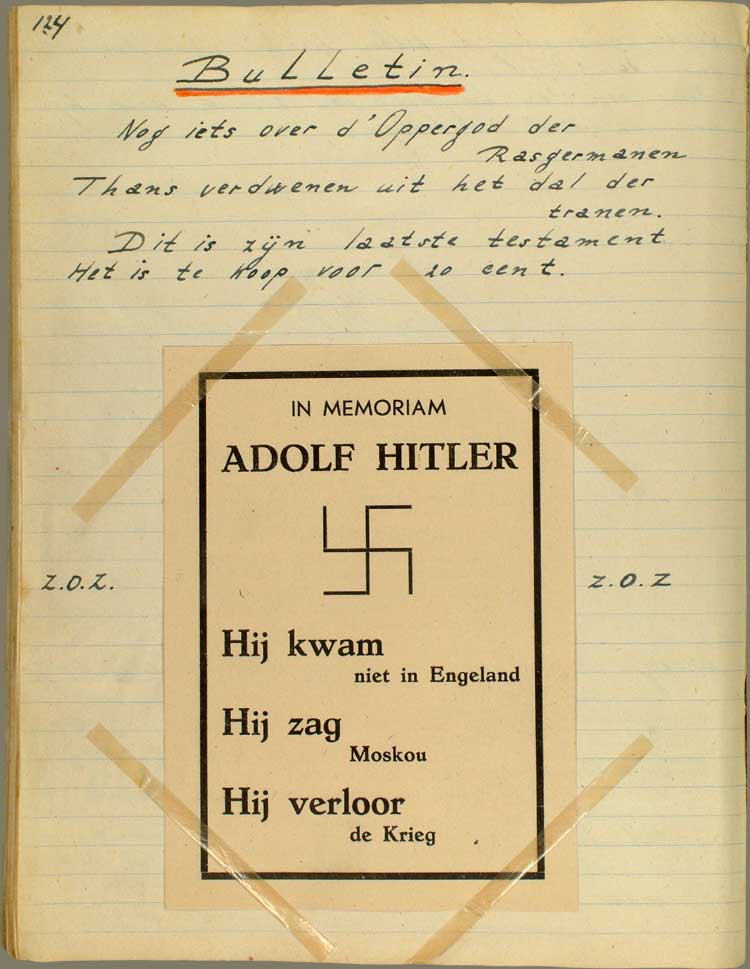 124
Bulletin.
Nog iets over d'Oppergod der
Rasgermanen
Thans verdwenen uit het dal der
tranen.
Dit is zijn laatste testament
Het is te koop voor 20 cent.
IN MEMORIAM
ADOLF HITLER
Z.O.Z.
Z.O.Z
Hij kwam
niet in Engeland
Hij zag
Moskou
Hij verloor
de Krieg